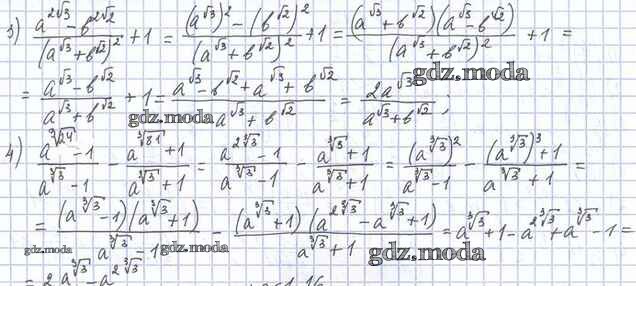 3) (a^{2√3} - b^{2√2})/(a^{√3} + b^{√2})^2 + 1 = ((a^{√3})^2 - (b^{√2})^2)/(a^{√3} + b^{√2})^2 + 1 = ((a^{√3} + b^{√2})(a^{√3} - b^{√2}))/(a^{√3} + b^{√2})^2 + 1 =
gdz.moda
= (a^{√3} - b^{√2})/(a^{√3} + b^{√2}) + 1 = (a^{√3} - b^{√2} + a^{√3} + b^{√2})/(a^{√3} + b^{√2}) = 2a^{√3}/(a^{√3} + b^{√2});
gdz.moda
4) (a^{∛24} - 1)/(a^{∛3} - 1) - (a^{∛81} + 1)/(a^{∛3} + 1) = (a^{2∛3} - 1)/(a^{∛3} - 1) - (a^{∛3} + 1)/(a^{∛3} + 1) = (a^{∛3})^2/(a^{∛3} - 1) - ((a^{∛3})^3 + 1)/(a^{∛3} + 1) =
= ((a^{∛3} - 1)(a^{∛3} + 1))/(a^{∛3} - 1) - ((a^{∛3} + 1)(a^{2∛3} - a^{∛3} + 1))/(a^{∛3} + 1) = a^{∛3} + 1 - a^{2∛3} + a^{∛3} - 1 =
gdz.moda gdz.moda gdz.moda
= 2a^{∛3} - a^{2∛3}